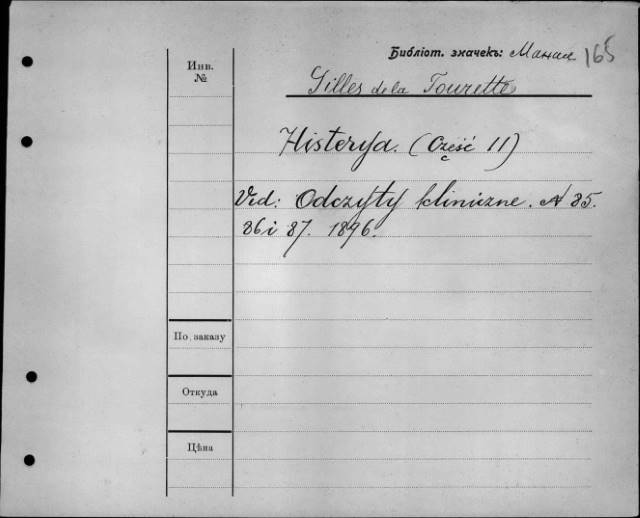 Библіот. значекъ: 165
Инв.
№
Gilles de la Tourette
Histerya. (Część II)
Vid: Odczyty kliniczne. № 85.
86 i 87. 1896.
По заказу
Откуда
Цѣна